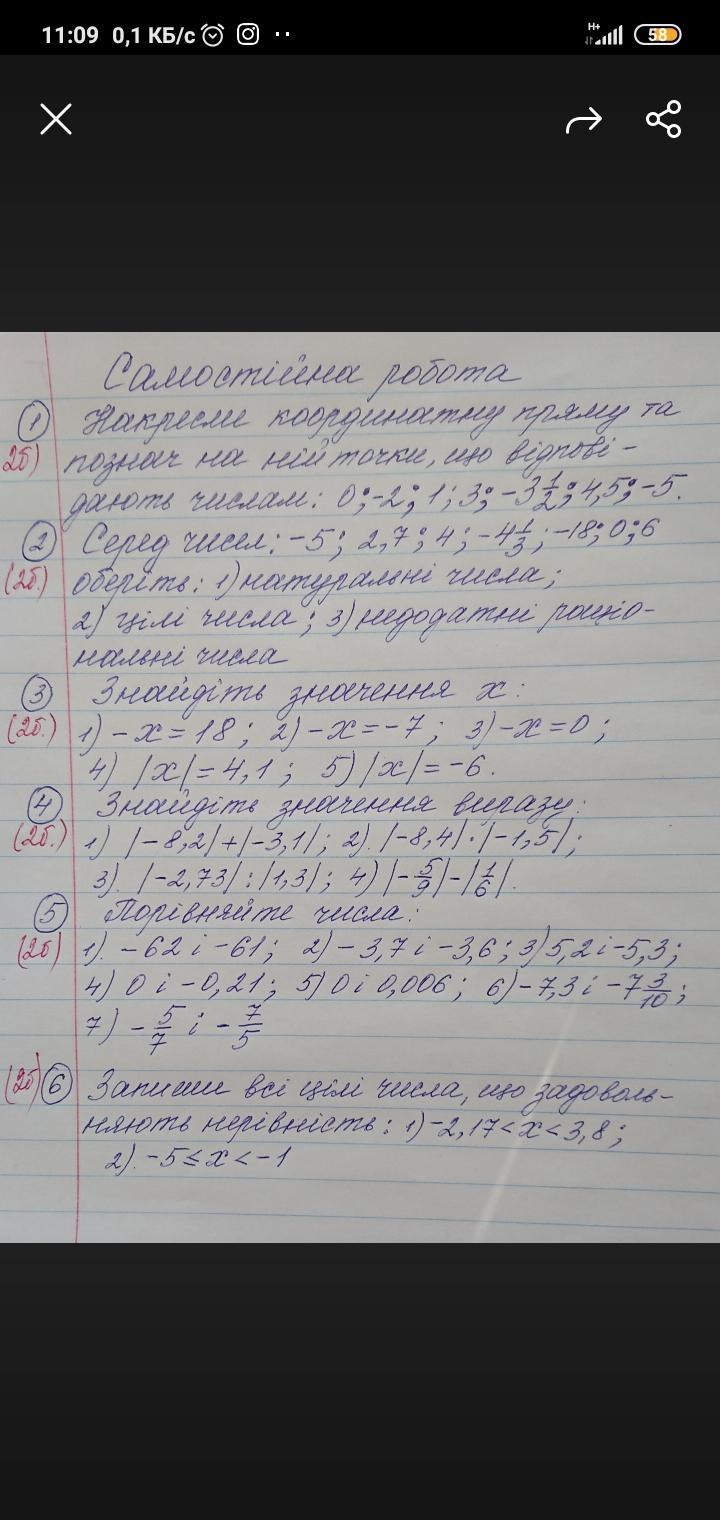 11:09 0,1 КБ/с
H+
58
Самостійна робота
① Накресли координатну пряму та
2б) познач на ній точки, що відпові-
дають числам: 0; -2; 1; 3; -3 1/2; 4,5; -5.
② Серед чисел: -5; 2,7; 4; -4 1/3; -18; 0; 6
(2б.) оберіть: 1) натуральні числа;
2) цілі числа; 3) недодатні раціо-
нальні числа
③ Знайдіть значення x:
(2б.) 1) -x = 18; 2) -x = -7; 3) -x = 0;
4) |x| = 4,1; 5) |x| = -6.
④ Знайдіть значення виразу:
(2б.) 1) |-8,2| + |-3,1|; 2). |-8,4| · |-1,5|;
3). |-2,73| : |1,3|; 4) |-5/9| - |1/6|.
⑤ Порівняйте числа:
(2б) 1). -62 і -61; 2) -3,7 і -3,6; 3) 5,2 і -5,3;
4) 0 і -0,21; 5) 0 і 0,006; 6) -7,3 і -7 3/10;
7) -5/7 і -7/5
(2б) ⑥ Запиши всі цілі числа, що задоволь-
няють нерівність: 1) -2,17 < x < 3,8;
2). -5 ≤ x < -1